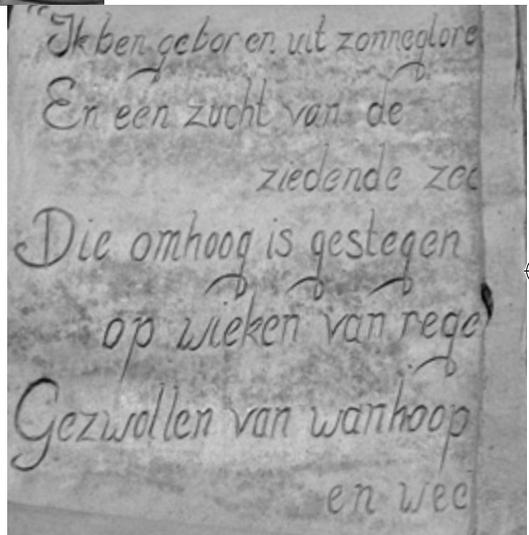 "Ik ben geboren uit zonneglore
En een zucht van de
ziedende zee
Die omhoog is gestegen
op wieken van rege
Gezwollen van wanhoop
en wee